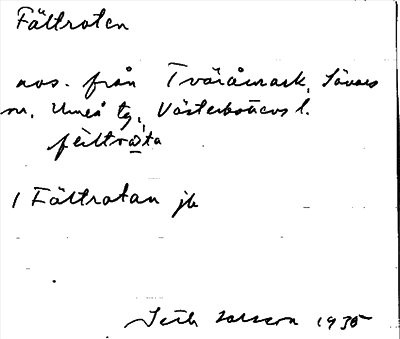 Fältroten
nos. från Tväråmark, Sävars
sn, Umeå tg, Västerbottens l.
fèltrω̲ta
1 Fältrotan jb
Seth Larsson 1935